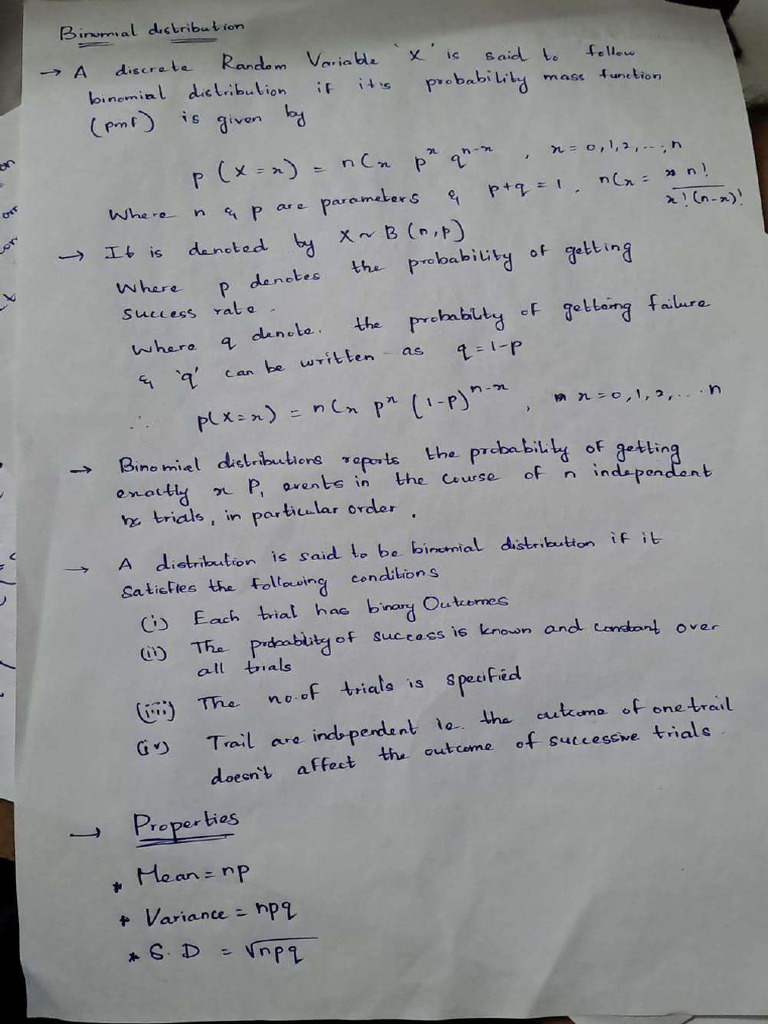 Binomial distribution
→ A discrete Random Variable 'X' is said to follow
binomial distribution if it's probability mass function
(pmf) is given by
p(X=x) = nCx pˣ qⁿ⁻ˣ , x=0,1,2,...,n
Where n & p are parameters & p+q=1, nCx = n!/x!(n-x)!
→ It is denoted by X~B(n,p)
Where p denotes the probability of getting
success rate.
where q denote. the probability of gettoing failure
& 'q' can be written as q=1-p
∴ p(X=x) = nCx pˣ (1-p)ⁿ⁻ˣ , x=0,1,2,...n
→ Binomial distributions reports the probability of getting
exactly x P, events in the course of n independent
trials, in particular order.
→ A distribution is said to be binomial distribution if it
satisfies the following conditions
(i) Each trial has binary Outcomes
(ii) The probability of success is known and constant over
all trials
(iii) The no.of trials is specified
(iv) Trail are independent ie. the outcome of one trail
doesn't affect the outcome of successive trials.
→ Properties
* Mean = np
* Variance = npq
* S.D = √npq